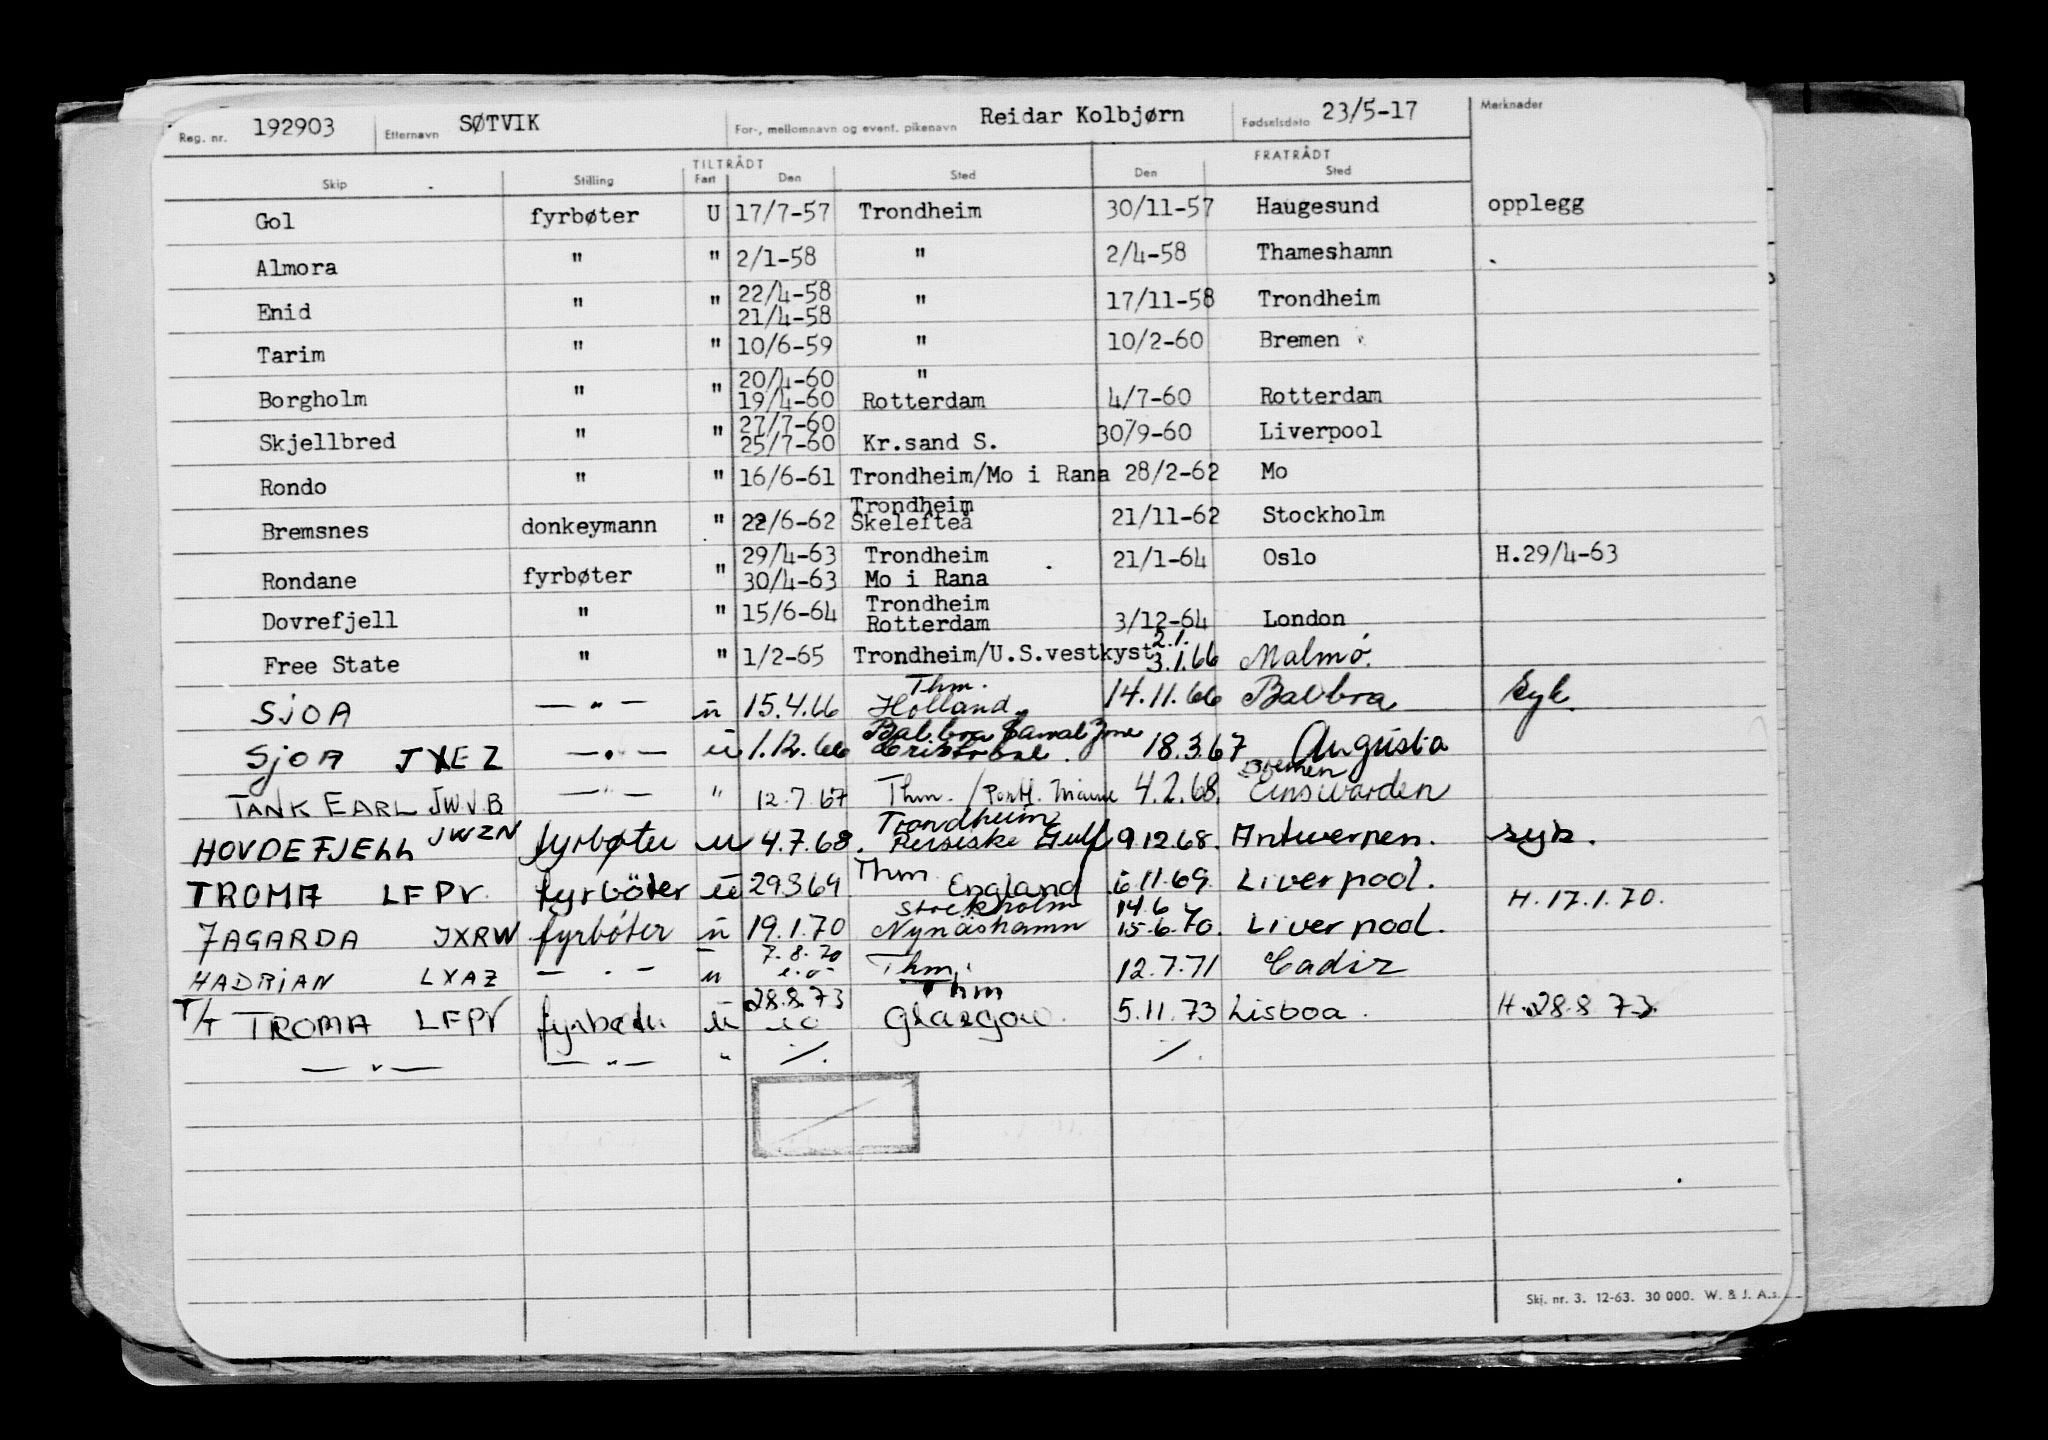 Reg. nr. 192903 Etternavn SØTVIK For-, mellomnavn og event. pikenavn Reidar Kolbjørn Fødselsdato 23/5-17 Merknader
TILTRÅDT FRATRÅDT
Skip Stilling Fart Den Sted Den Sted
Gol fyrbøter U 17/7-57 Trondheim 30/11-57 Haugesund opplegg
Almora " " 2/1-58 " 2/4-58 Thameshamn
22/4-58
Enid " " 21/4-58 " 17/11-58 Trondheim
Tarim " " 10/6-59 " 10/2-60 Bremen
20/4-60 "
Borgholm " " 19/4-60 Rotterdam 4/7-60 Rotterdam
27/7-60
Skjellbred " " 25/7-60 Kr.sand S. 30/9-60 Liverpool
Rondo " " 16/6-61 Trondheim/Mo i Rana 28/2-62 Mo
Trondheim
Bremsnes donkeymann " 22/6-62 Skelefteå 21/11-62 Stockholm
29/4-63 Trondheim 21/1-64 Oslo H.29/4-63
Rondane fyrbøter " 30/4-63 Mo i Rana
Trondheim
Dovrefjell " " 15/6-64 Rotterdam 3/12-64 London
2.1.
Free State " " 1/2-65 Trondheim/U.S.vestkyst 3.1.66 Malmø.
Thm.
SJOA — " — u 15.4.66 Holland 14.11.66 Balboa syk.
Balboa Canal Zone
SJOA JXEZ — " — u 1.12.66 Cristobal. 18.3.67 Augusta
Bremen
TANK EARL JWVB — " — " 12.7.67 Thm. / Portl. Maine 4.2.68. Einswarden
Trondheim
HOVDEFJELL JWZN fyrbøter u 4.7.68. Persiske Gulf 9.12.68. Antwerpen. syk.
Thm
TROMA LFPV fyrböter u 29.8.69 England 6.11.69. Liverpool.
Stockholm 14.6 H. 17.1.70.
FAGARDA JXRW fyrbøter u 19.1.70 Nynäshamn 15.6.70. Liverpool.
7.8.70
HADRIAN LXAZ — " — u Thm. 12.7.71 Cadiz
28.8.73 Thm
T/T TROMA LFPV fyrbøter u Glasgow. 5.11.73 Lisboa. H. 28.8.73.
— " — — " — " ./. ./.
Skj. nr. 3. 12-63. 30 000. W. & J. A.s.